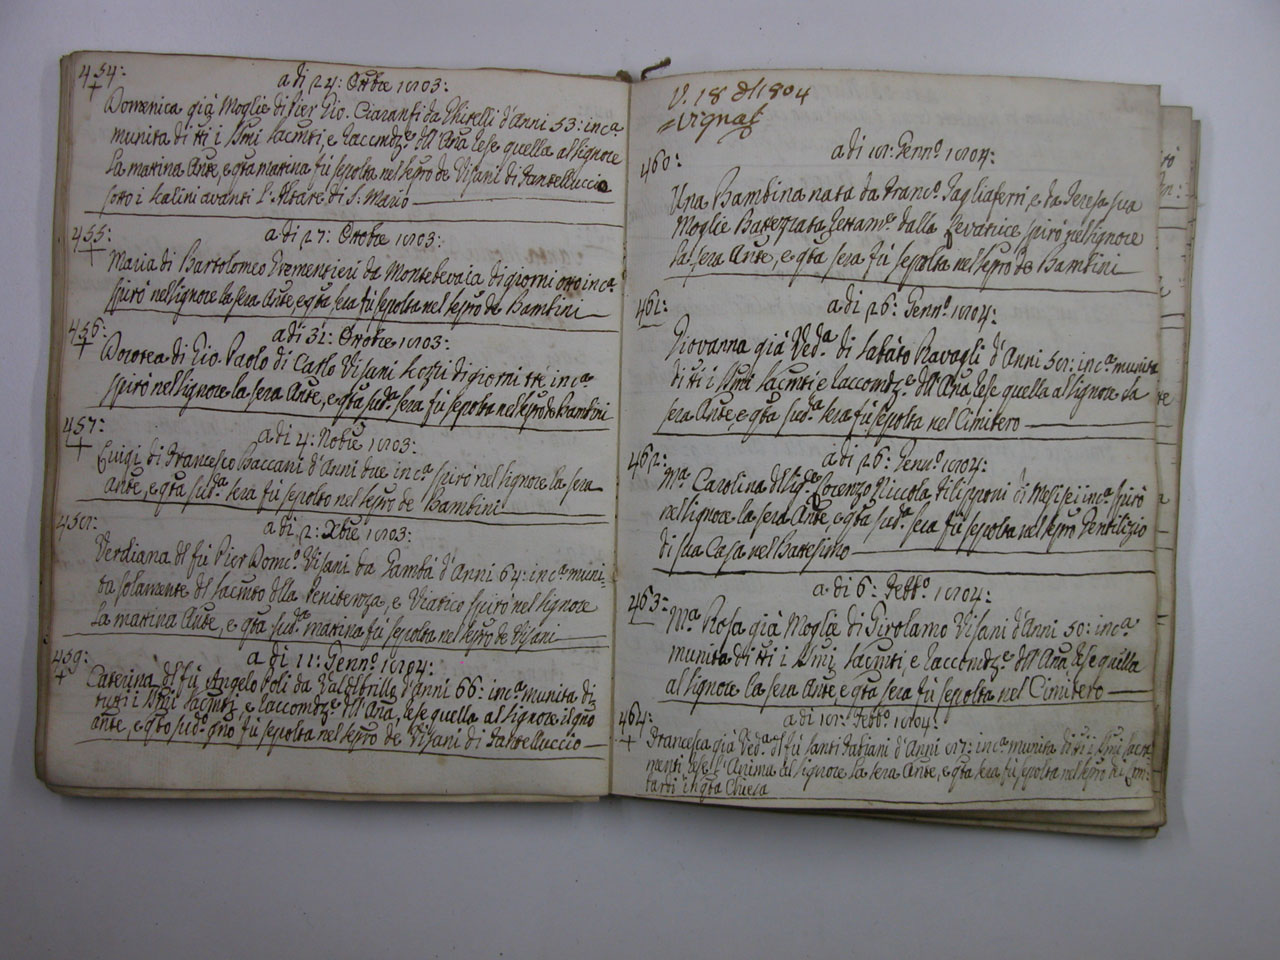 454:
a di 24: Ottobre 1803:
Domenica già Moglie di Pier Gio. Ciaranfi da Ghirelli d'Anni 53: inca
munita di tti i SSmi Sacmti, e Raccomdze. dll'Ana rese quella al Signore
la matina Ante, e qta matina fù sepolta nel Sepro de Visani di Fantelluccio
sotto i scalini avanti l'Altare di S. Mario
455:
a di 27: Ottobre 1803:
Maria di Bartolomeo da Montebovaia di giorni otto inca.
spirò nel Signore la sera Ante, e qta sera fù sepolta nel Sepro de Bambini
456:
a di 31: Ottobre 1803:
Dorotea di Gio. Paolo di Carlo Visani di giorni tre inca.
spirò nel Signore la sera Ante, e qta suda. sera fù sepolta nel Sepro de Bambini
457:
a di 4: Nobre 1803:
Luigi di Francesco Baccani d'Anni due inca. spirò nel Signore la sera
Ante, e qta suda. sera fù sepolto nel Sepro de Bambini
458:
a di 2: Xbre 1803:
Verdiana dl fù Pier Domco. Visani da Gamba d'Anni 64: inca. muni-
ta solamente dl Sacmto dlla Penitenza, e Viatico spirò nel Signore
la matina Ante, e qta suda. matina fù sepolta nel Sepro de Visani
459:
a di 11: Genno. 1804:
Caterina dl fù Angelo Poli da Valdibrilla d'anni 66: inca. munita di
tutti i SSmi Sacmti e Raccomdze dll'Ana, rese quella al Signore il gno
ante, e qto sudo. gno fù sepolta nel Sepro de Visani di Fantelluccio
V. 18 dl 1804
=Vignali
460:
a di 18: Genno. 1804:
Una Bambina nata da Franco. Tagliaferri e da Teresa sua
Moglie Battezzata dalla Levatrice spirò nel Signore
la sera Ante, e qta sera fù sepolta nel Sepro de Bambini
461:
a di 26: Genno. 1804:
Giovanna già Veda. di Sabato Ravagli d'Anni 58: inca. munita
di tti i SSmi Sacmti e Raccomdze. dll'Ana rese quella al Signore la
sera Ante, e qta suda. sera fù sepolta nel Cimitero
462:
a di 26: Genno. 1804:
Ma. Carolina dl Sige. Lorenzo Niccola Filipponi di inca. spirò
nel Signore la sera Ante, e qta suda. sera fù sepolta nel Sepro Gentilizio
di sua Casa nel Battesimo
463:
a di 6: Febbo. 1804:
Ma. Rosa già Moglie di Girolamo Visani d'Anni 50: inca.
munita di tti i SSmi Sacmti, e Raccomdze. dll'Ana rese quella
al Signore la sera Ante, e qta sera fù sepolta nel Cimitero
464:
a di 18: Febbo. 1804:
Francesca già Veda. dl fù Santi Fabiani d'Anni 87: inca. munita di tti i SSmi Sacra-
menti rese l'Anima al Signore la sera Ante, e qta sera fù sepolta nel Sepro dei Con-
tardi in qta Chiesa